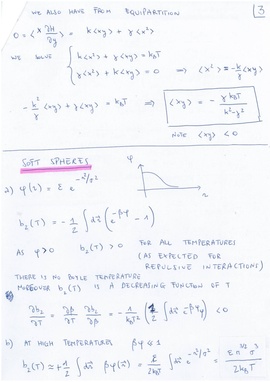 WE ALSO HAVE FROM EQUIPARTITION
3
0 = <x ∂H/∂y> = k<xy> + γ<x²>
WE HAVE { k<x²> + γ<xy> = k_BT
γ<x²> + k<xy> = 0 ⇒ <x²> = -k/γ <xy>
-k²/γ <xy> + γ<xy> = k_BT ⇒ <xy> = - γk_BT/(k²-γ²)
NOTE <xy> < 0
SOFT SPHERES
a) φ(r) = ε e^{-r²/σ²}
φ
r
b₂(T) = -1/2 ∫dr (e^{-βφ} - 1)
AS φ>0 b₂(T) > 0 FOR ALL TEMPERATURES
(AS EXPECTED FOR
REPULSIVE INTERACTIONS)
THERE IS NO BOYLE TEMPERATURE
MOREOVER b₂(T) IS A DECREASING FUNCTION OF T
∂b₂/∂T = ∂β/∂T ∂b₂/∂β = -1/(k_BT²) (1/2 ∫dr e^{-βφ}φ) < 0
b) AT HIGH TEMPERATURES βφ ≪ 1
b₂(T) ≃ +1/2 ∫dr βφ(r) = ε/(2k_BT) ∫dr e^{-r²/σ²} = επ^{3/2}σ³/(2k_BT)